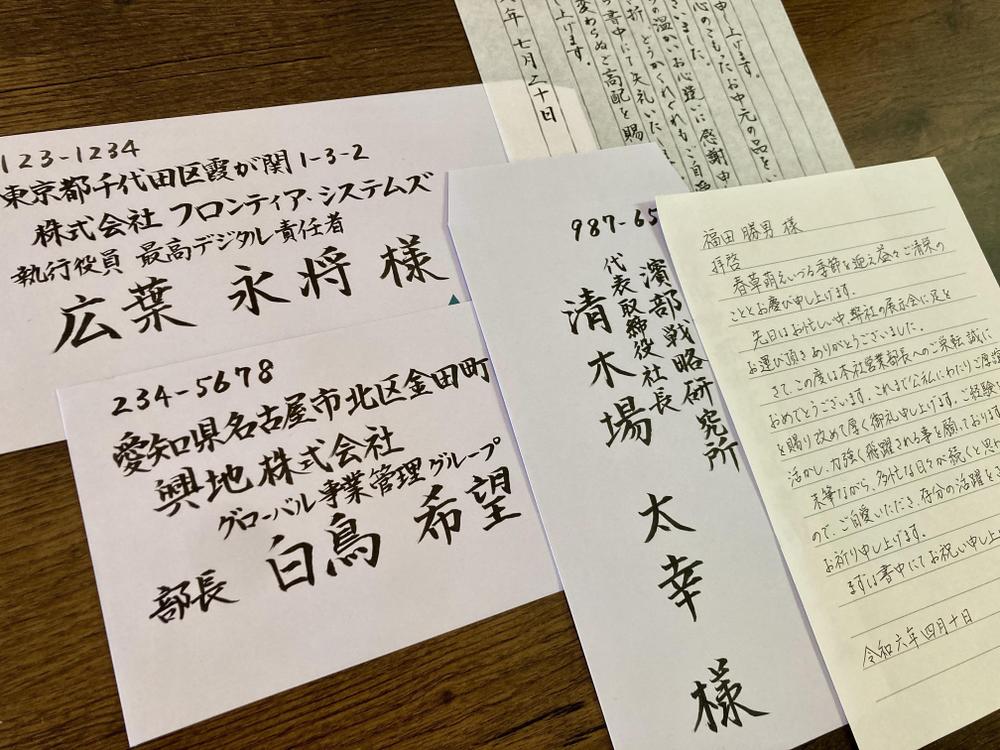 123-1234
東京都千代田区霞が関1-3-2
株式会社 フロンティア・システムズ
執行役員 最高デジタル責任者
広葉 永将 様
234-5678
愛知県名古屋市北区金田町
興地株式会社
グローバル事業管理グループ
部長 白鳥 希望
987-65
濱部戦略研究所
代表取締役社長
清水場 太幸 様
申し上げます。
心のこもったお中元の品を
ざいました。
の温かいお心遣いに感謝申
折 どうかくれぐれもご自愛
書中にて失礼いた
変わらぬご高配を賜
し上げます。
年 七月二十日
福田 勝男 様
拝啓
春草萌えいづる季節を迎え益々ご清栄の
こととお慶び申し上げます。
先日はお忙しい中、弊社の展示会に足を
お運び頂きありがとうございました。
さて、この度は本社営業部長へのご栄転 誠に
おめでとうございます。これまで公私にわたりご厚誼
を賜り改めて厚く御礼申し上げます。ご経験を
活かし、力強く飛躍される事を願っております
末筆ながら、多忙な日々が続くと思わ
ので、ご自愛いただき、存分の活躍をさ
お祈り申し上げます。
まずは書中にてお祝い申し上
令和六年四月十日